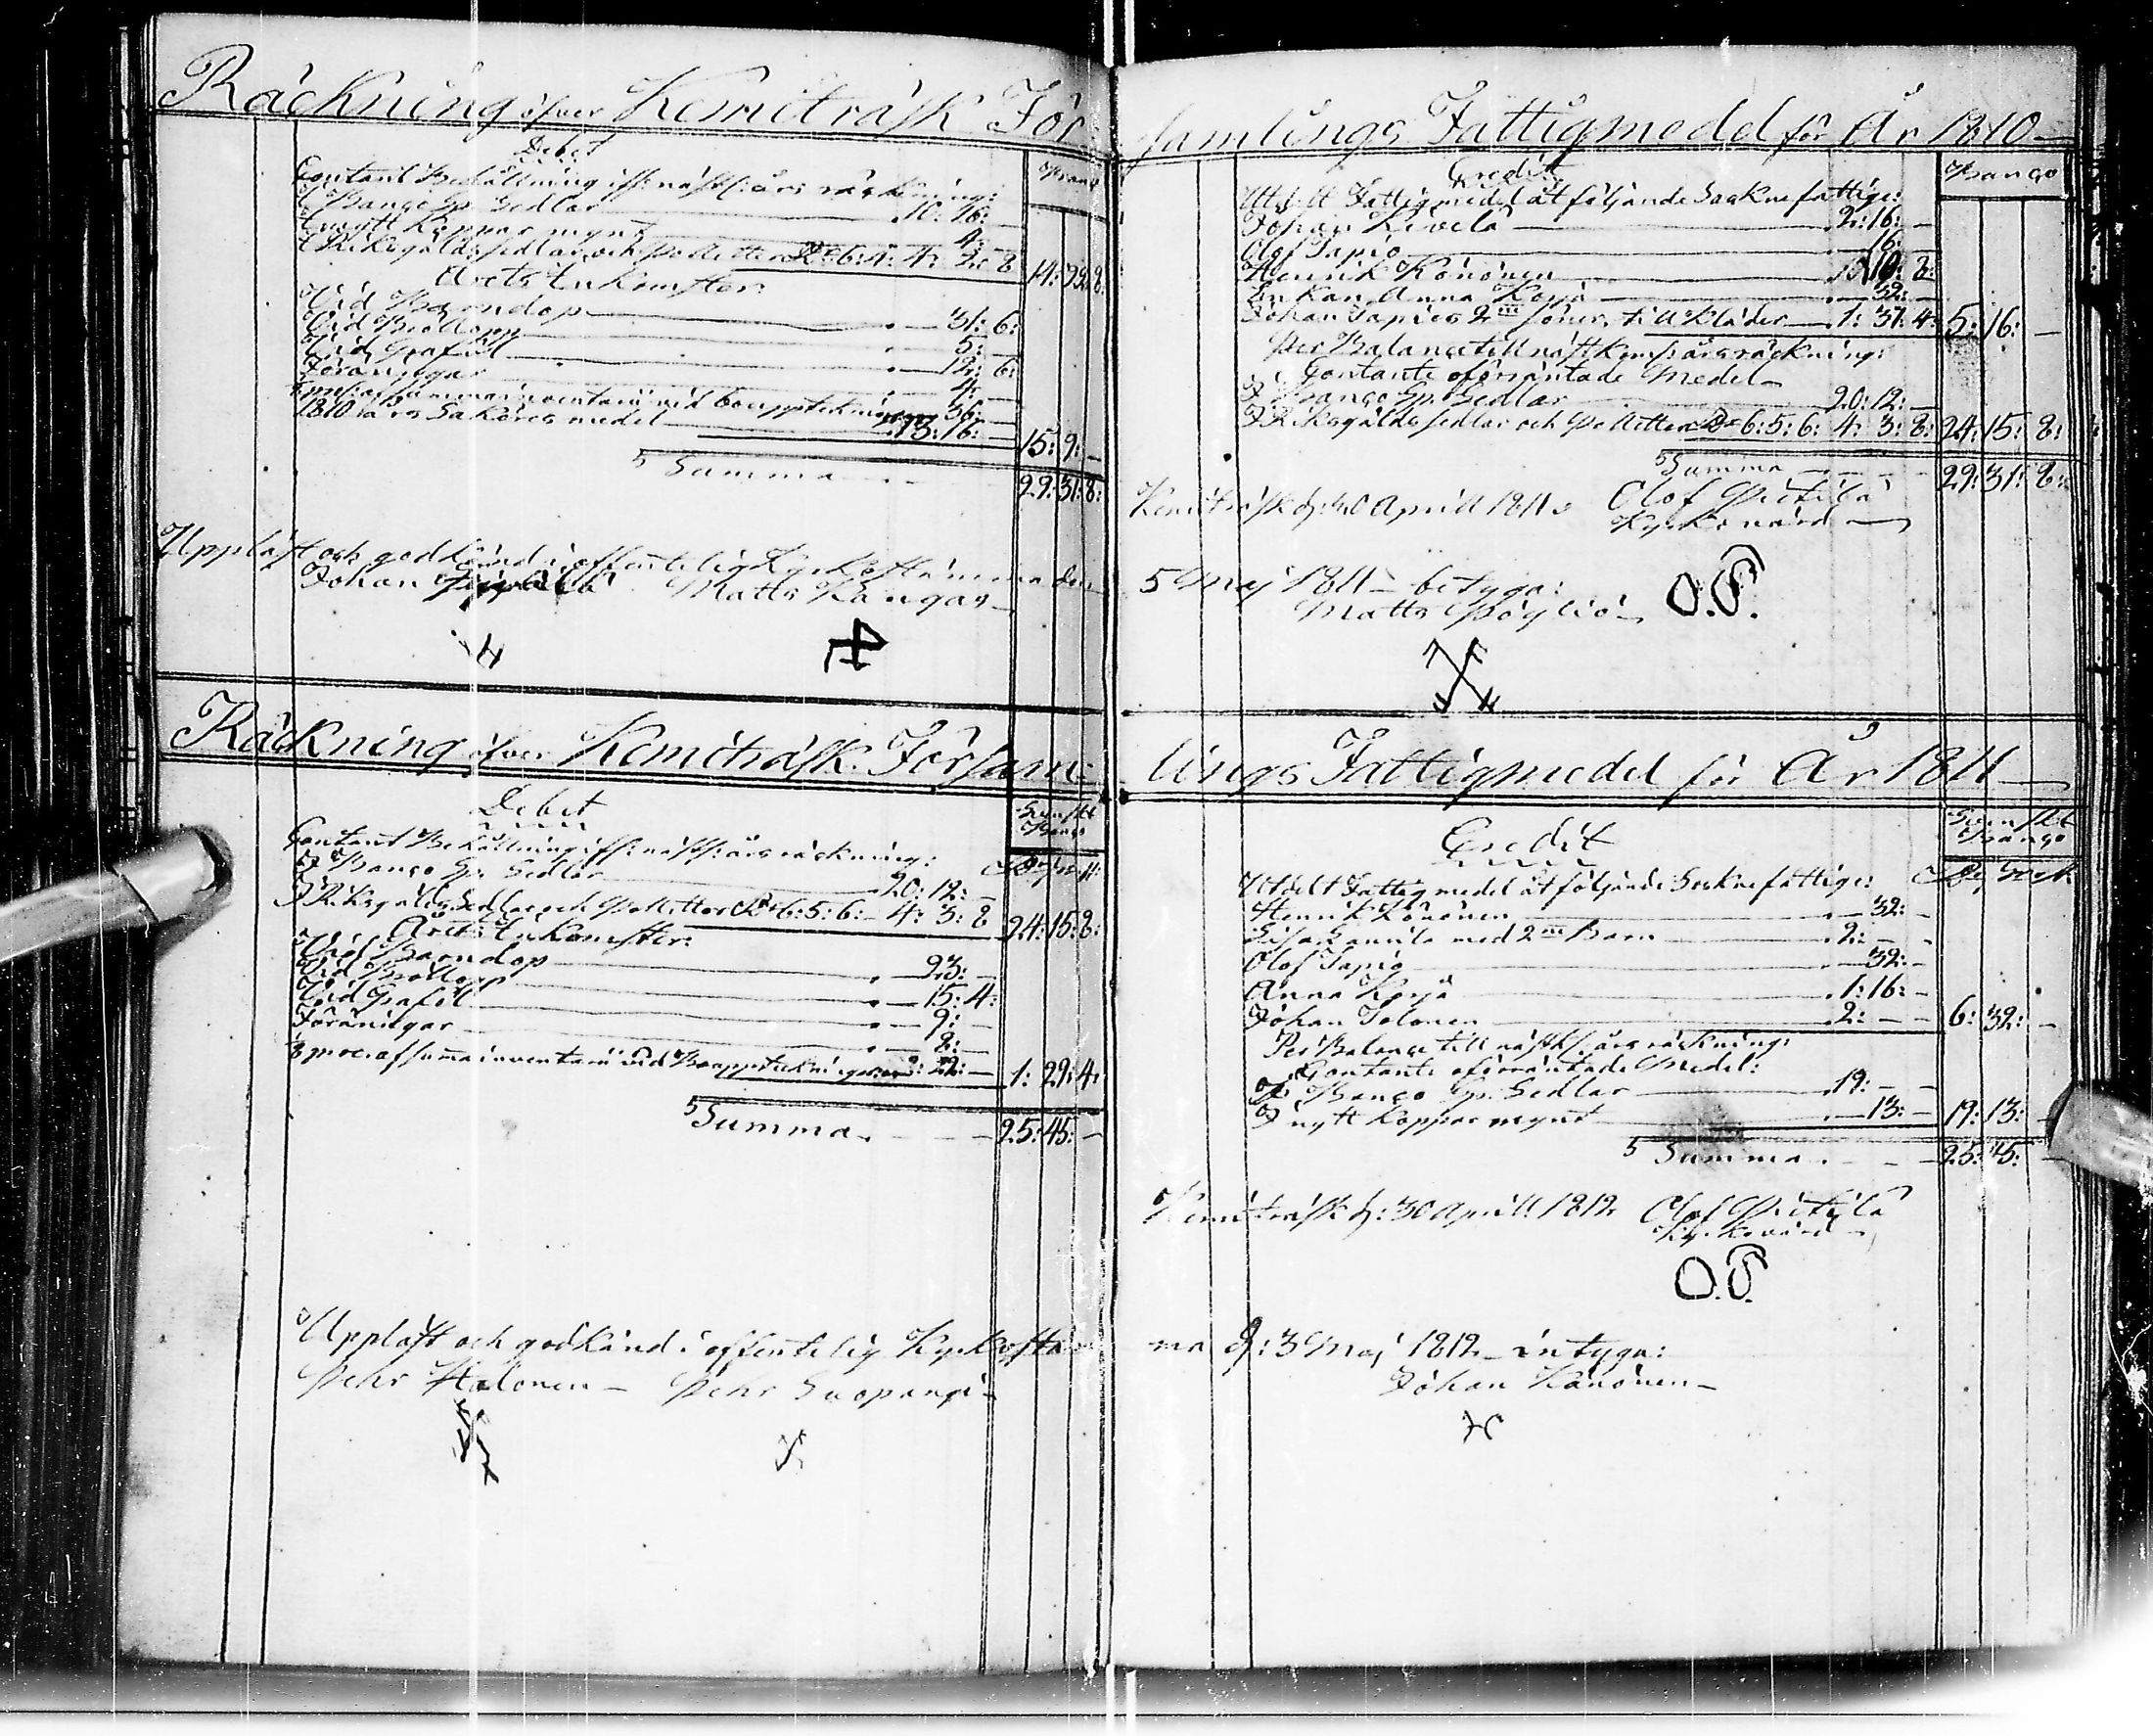 Räckning öfver Kemiträsk För
Debet
Banco
Contant Behållning iss: näst: års räckning:
i Banco Sp: Sedlar 10: 16: —
i nytt Koppar mynt 4: —
i Riksgälds sedlar och Polletter Rd 6: 4: 4: 3: 8 14: 22: 8:
Årets Inkomster:
Vid Barndop 31: 6:
Vid Bröllopp 5: —
Vid Graföl 12: 6:
Föräningar 4: —
36: —
1810 års Saköres medel 13: 16: — 15: 9: —
Summa 29: 31: 8:
Uppläst och godkänd i offentelig Kyrkostämma den
Johan Matts Kangas
samlings Fattigmedel för År 1810
Credit
Banco
Utdelt Fattigmedel åt följande Sockne fattige:
Johan Kivelä 2: 16: —
Olof Tapio 16: —
Henrik Könönen 10: 8:
Enkan Anna Korja 32: —
Johan Tapios 2ne söner, till Kläder 1: 31: 4: 5: 16: —
Per Balance till nästkomt: års räckning:
Contante oförräntade Medel
I Banco Sp: Sedlar 20: 12: —
I Riksgälds sedlar och Polletter Rd 6: 5: 6: 4: 3: 8: 24: 15: 8:
Summa 29: 31: 8:
Kemiträsk d: 30 Aprill 1811 Olof Pietilä
Kyrkovärd
5 Maj 1811 betyga:
Matts Pöyliö O.P.
Räckning öfver Kemiträsk Försam-
Debet
Svenskt Banco
Contant Behållning iss: näst: års räckning:
I Banco Sp: Sedlar 20: 12: —
I Riksgälds Sedlar och Polletter Rd 6: 5: 6: 4: 3: 8 24: 15: 8:
Årets Inkomster:
Vid Barndop 23: —
Vid Bröllopp 15: 4:
Vid Graföl 9: —
Föräningar 8: —
22: — 1: 29: 4:
Summa 25: 45: —
Uppläst och godkänd i offentelig Kyrkostäm
Pehr Halonen Pehr Suopangi
lings Fattigmedel för År 1811
Credit
Svenskt Banco
Utdelt Fattigmedel åt följande Sockne fattige:
Henrik Könönen 32: —
med 2ne Barn 2: — —
Olof Tapio 32: —
Anna Korja 1: 16: —
Johan Tolonen 2: — — 6: 32: —
Per Balance till näst: års räckning:
Contante oförräntade Medel:
I Banco Sp: Sedlar 19: — —
I nytt Koppar mynt 13: — 19: 13: —
Summa 25: 45: —
Kemiträsk d: 30 Aprill 1812 Olof Pietilä
Kyrkovärd
O.P.
ma d: 3 Maj 1812 intyga:
Johan Känönen